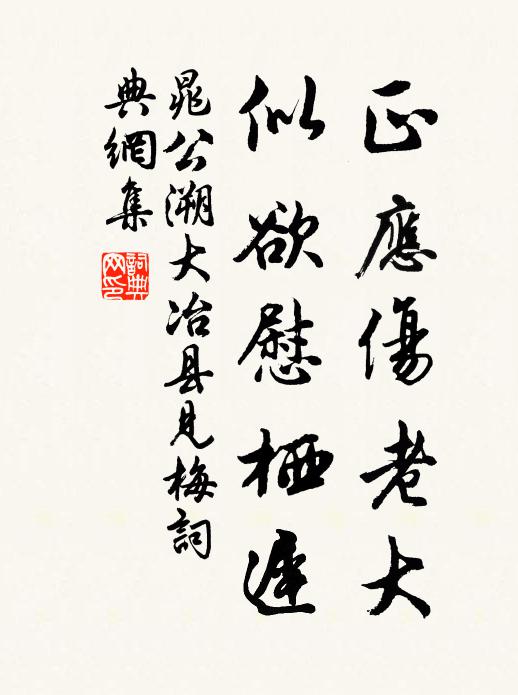 正應傷老大
似欲慰栖遲
晁公溯大冶县見梅詞
典網集
詞典
网印